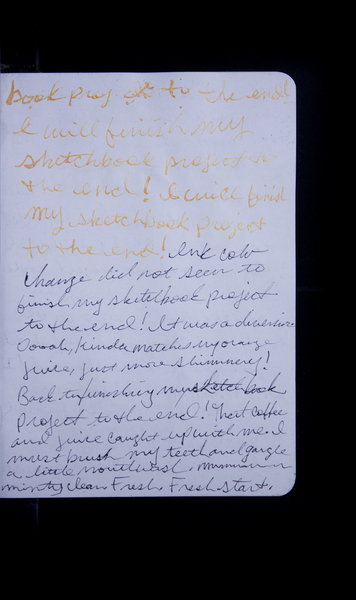 book project to the end!
I will finish my
sketchbook project to
the end! I will finish
my sketchbook project
to the end! Ink color
change did not seem to
finish my sketchbook project
to the end! It was a diversion
Ooooh, kinda matches my orange
juice, just more shimmery!
Back to finishing my sketchbook
project to the end! That coffee
and juice caught up with me. I
must brush my teeth and gargle
a little mouthwash. Mmmmm
minty clean Fresh. Fresh start.